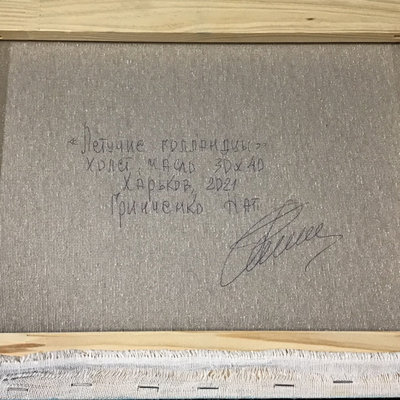 «Летучие голландцы»
Холст масло 30х40
Харьков, 2021
Гриниченко НАТ.